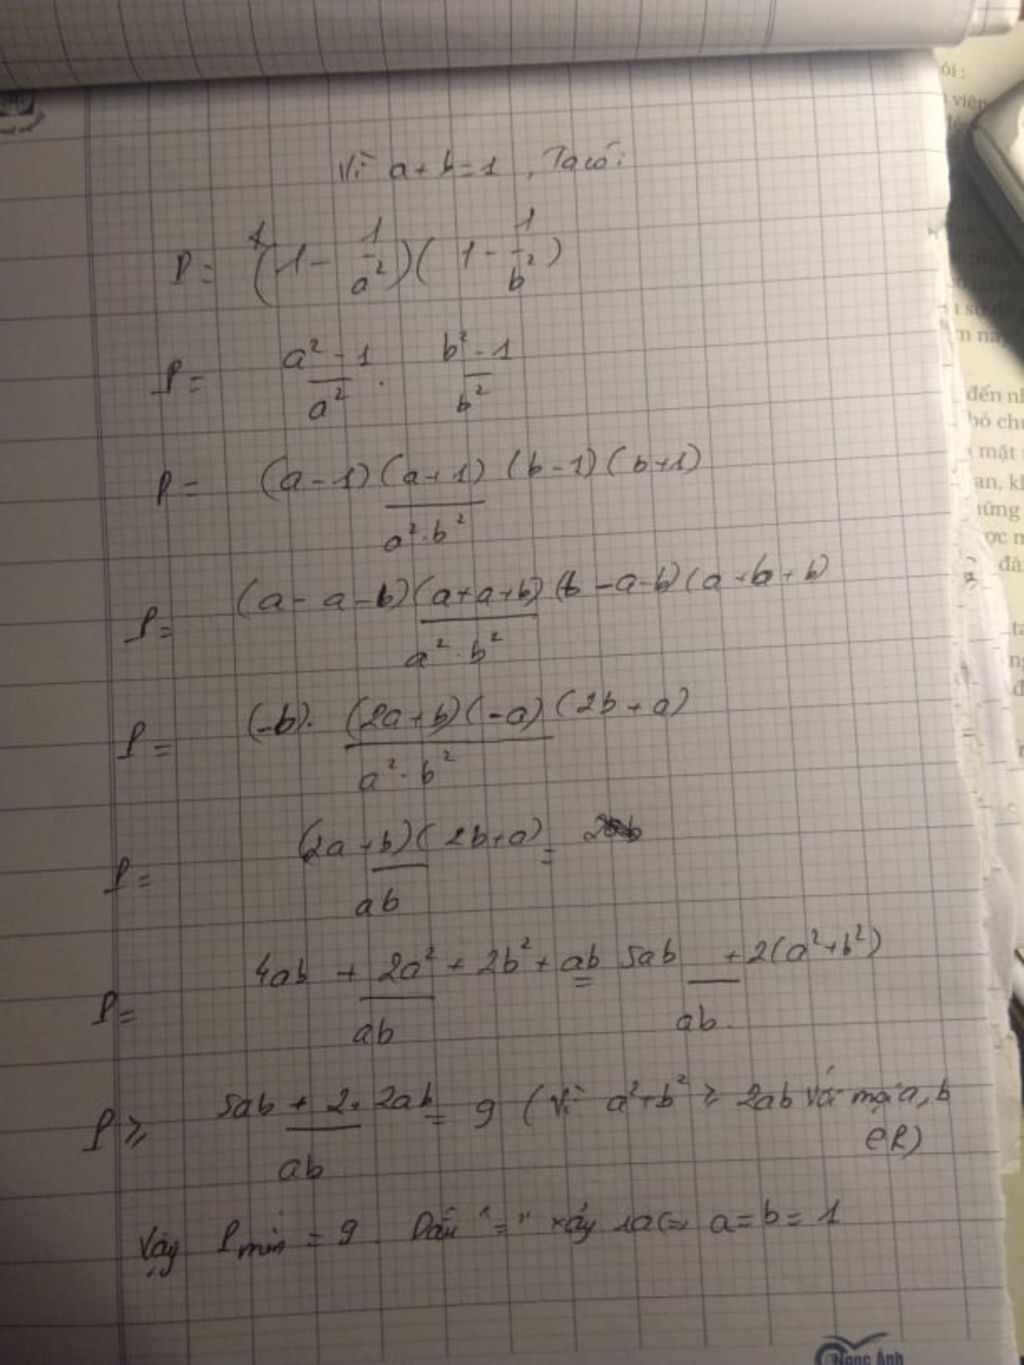 Vì a + b = 1 , Ta có:
P = (1 - 1/a²)(1 - 1/b²)
P = (a² - 1)/a² . (b² - 1)/b²
P = (a - 1)(a + 1)(b - 1)(b + 1) / a².b²
P = (a - a - b)(a + a + b)(b - a - b)(a + b + b) / a².b²
P = (-b).(2a + b)(-a)(2b + a) / a².b²
P = (2a + b)(2b + a) / ab =
P = (4ab + 2a² + 2b² + ab) / ab = (5ab + 2(a² + b²)) / ab
P ≥ (5ab + 2.2ab) / ab = 9 (Vì a² + b² ≥ 2ab với mọi a, b
∈ R)
Vậy Pmin = 9 Dấu "=" xảy ra <=> a = b = 1
Ngọc Ánh
ói :
viên
đến nh
bỏ chú
mặt
an, kh
hững